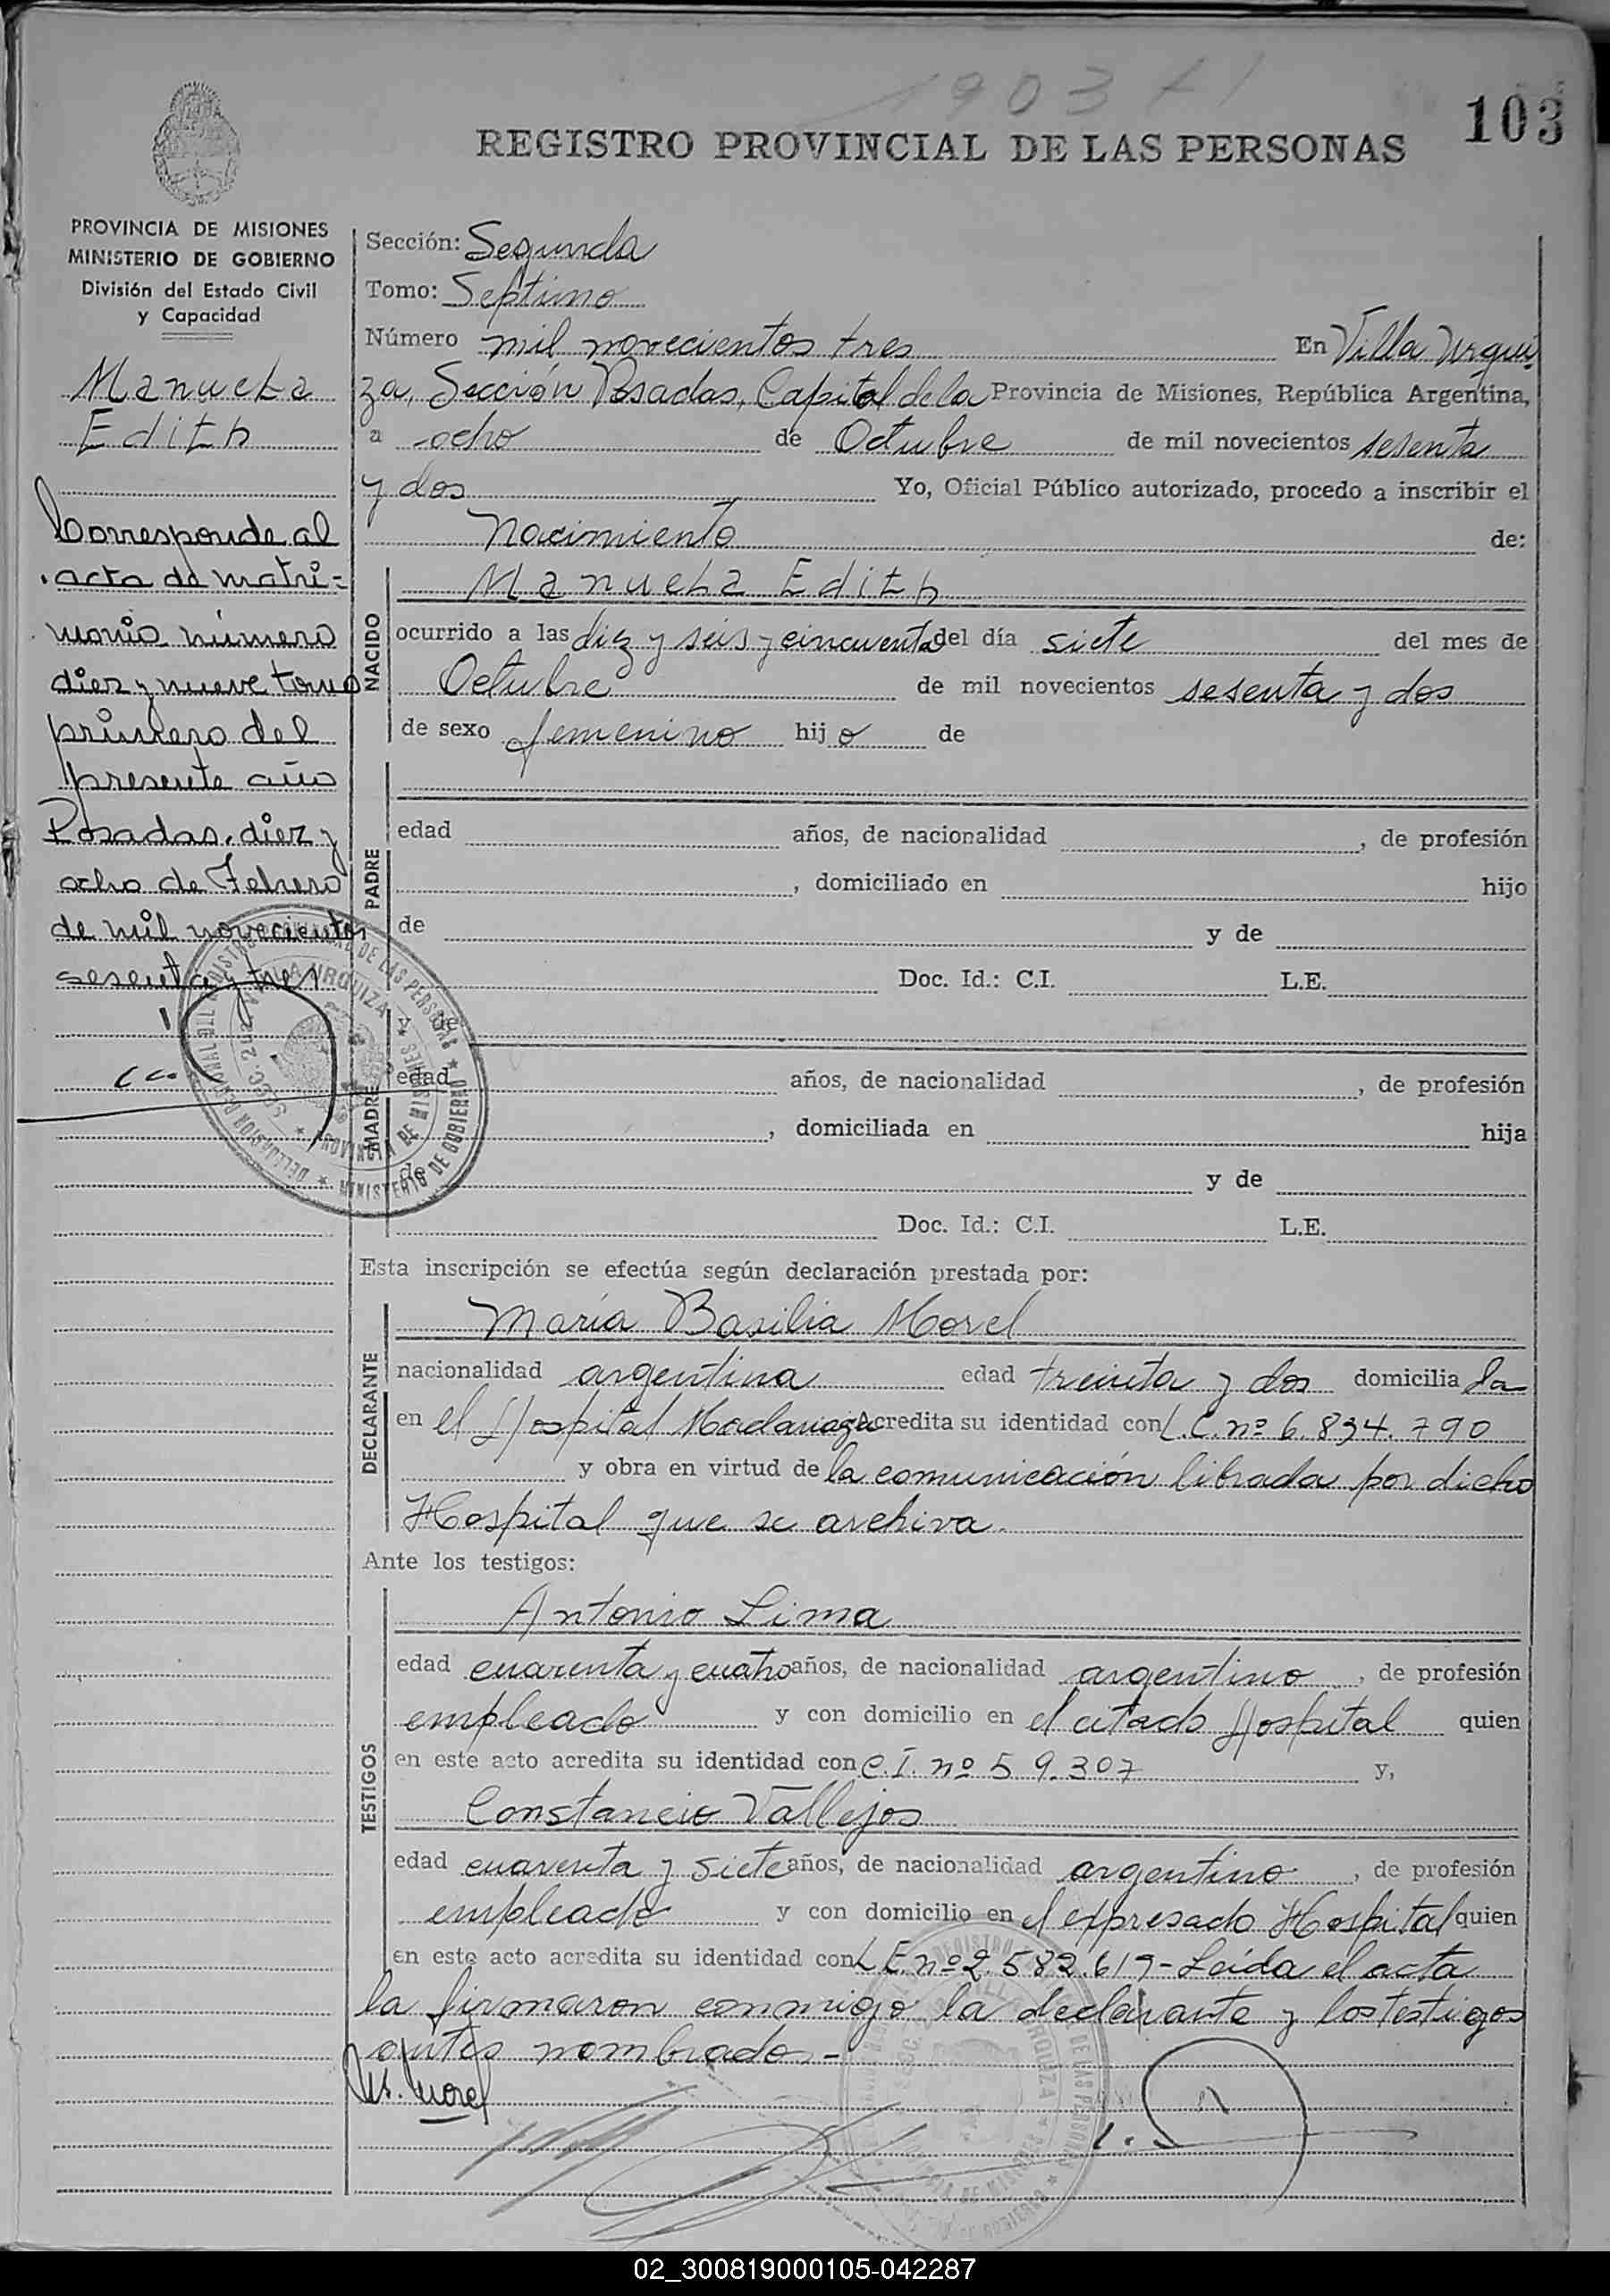 1903 + 1
103
REGISTRO PROVINCIAL DE LAS PERSONAS
PROVINCIA DE MISIONES
MINISTERIO DE GOBIERNO
División del Estado Civil
y Capacidad
Manuela
Edith
Corresponde al
acta de matri-
monio número
diez y nueve tomo
primero del
presente año
Posadas, diez y
ocho de Febrero
de mil novecientos
sesenta y tres
Sección: Segunda
Tomo: Septimo
Número mil novecientos tres En Villa Urqui
za, Sección Posadas, Capital de la Provincia de Misiones, República Argentina,
a ocho de Octubre de mil novecientos sesenta
y dos Yo, Oficial Público autorizado, procedo a inscribir el
Nacimiento de:
NACIDO
Manuela Edith
ocurrido a las diez y seis y cincuenta del día siete del mes de
Octubre de mil novecientos sesenta y dos
de sexo femenino hijo de
PADRE
edad años, de nacionalidad , de profesión
, domiciliado en hijo
de y de
Doc. Id.: C.I. L.E.
y de
MADRE
edad años, de nacionalidad , de profesión
, domiciliada en hija
de y de
Doc. Id.: C.I. L.E.
DELEGACION REGIONAL DEL REGISTRO PROVINCIAL DE LAS PERSONAS ★ MINISTERIO DE GOBIERNO ★
SECC. 2da. VILLA URQUIZA ★ PROVINCIA DE MISIONES ★
Esta inscripción se efectúa según declaración prestada por:
DECLARANTE
María Basilia Morel
nacionalidad argentina edad treinta y dos domicilia da
en el Hospital Madariaga Acredita su identidad con L.C. nº 6.834.790
y obra en virtud de la comunicación librada por dicho
Hospital que se archiva.
Ante los testigos:
TESTIGOS
Antonio Lima
edad cuarenta y cuatro años, de nacionalidad argentino , de profesión
empleado y con domicilio en el citado Hospital quien
en este acto acredita su identidad con C.I. nº 59.307 y,
Constancio Vallejos
edad cuarenta y siete años, de nacionalidad argentino , de profesión
empleado y con domicilio en el expresado Hospital quien
en este acto acredita su identidad con L.E. nº 2.582.619- Leída el acta
la firmaron conmigo la declarante y los testigos
antes nombrados.-
Ms. Morel
02_300819000105-042287